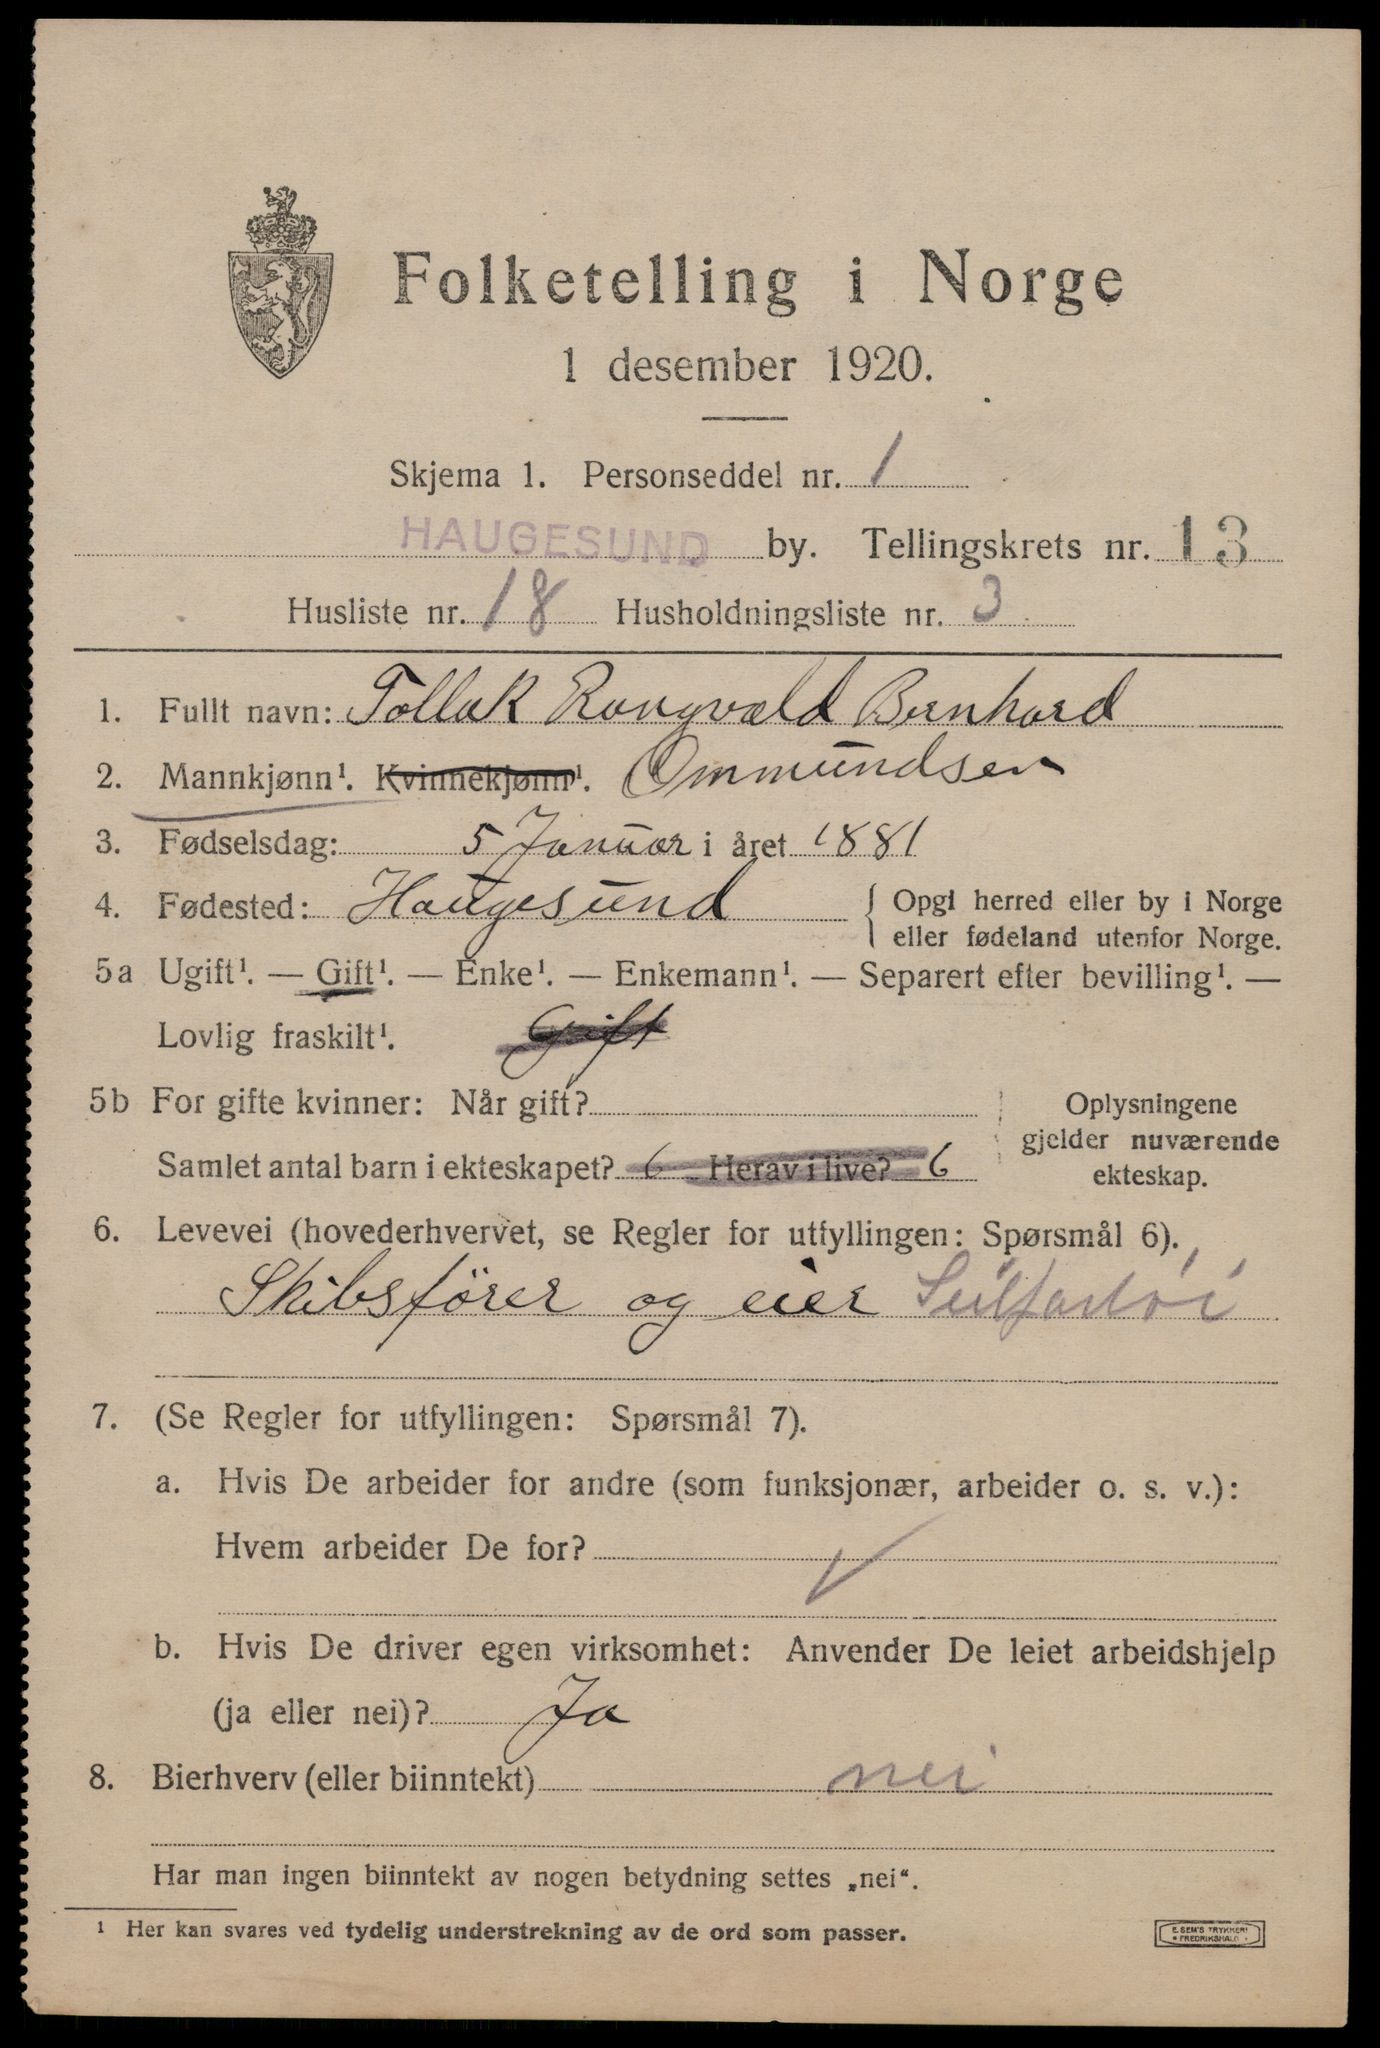 Folketelling i Norge
1 desember 1920.
Skjema 1. Personseddel nr. 1
HAUGESUND by. Tellingskrets nr. 13
Husliste nr. 18 Husholdningsliste nr. 3
1. Fullt navn: Tollak Rangvald Bernhard
2. Mannkjønn¹. Kvinnekjønn¹. Ommundsen
3. Fødselsdag: 5 Januar i året 1881
4. Fødested: Haugesund { Opgi herred eller by i Norge
eller fødeland utenfor Norge.
5a Ugift¹. — Gift¹. — Enke¹. — Enkemann¹. — Separert efter bevilling¹. —
Lovlig fraskilt¹. Gift
5b For gifte kvinner: Når gift? Oplysningene
gjelder nuværende
Samlet antal barn i ekteskapet? 6 Herav i live? 6 ekteskap.
6. Levevei (hovederhvervet, se Regler for utfyllingen: Spørsmål 6).
Skibsförer og eier
7. (Se Regler for utfyllingen: Spørsmål 7).
a. Hvis De arbeider for andre (som funksjonær, arbeider o. s. v.):
Hvem arbeider De for?
b. Hvis De driver egen virksomhet: Anvender De leiet arbeidshjelp
(ja eller nei)? Ja
8. Bierhverv (eller biinntekt) nei
Har man ingen biinntekt av nogen betydning settes „nei“.
¹ Her kan svares ved tydelig understrekning av de ord som passer.
E. SEM'S TRYKKERI
FREDRIKSHALD